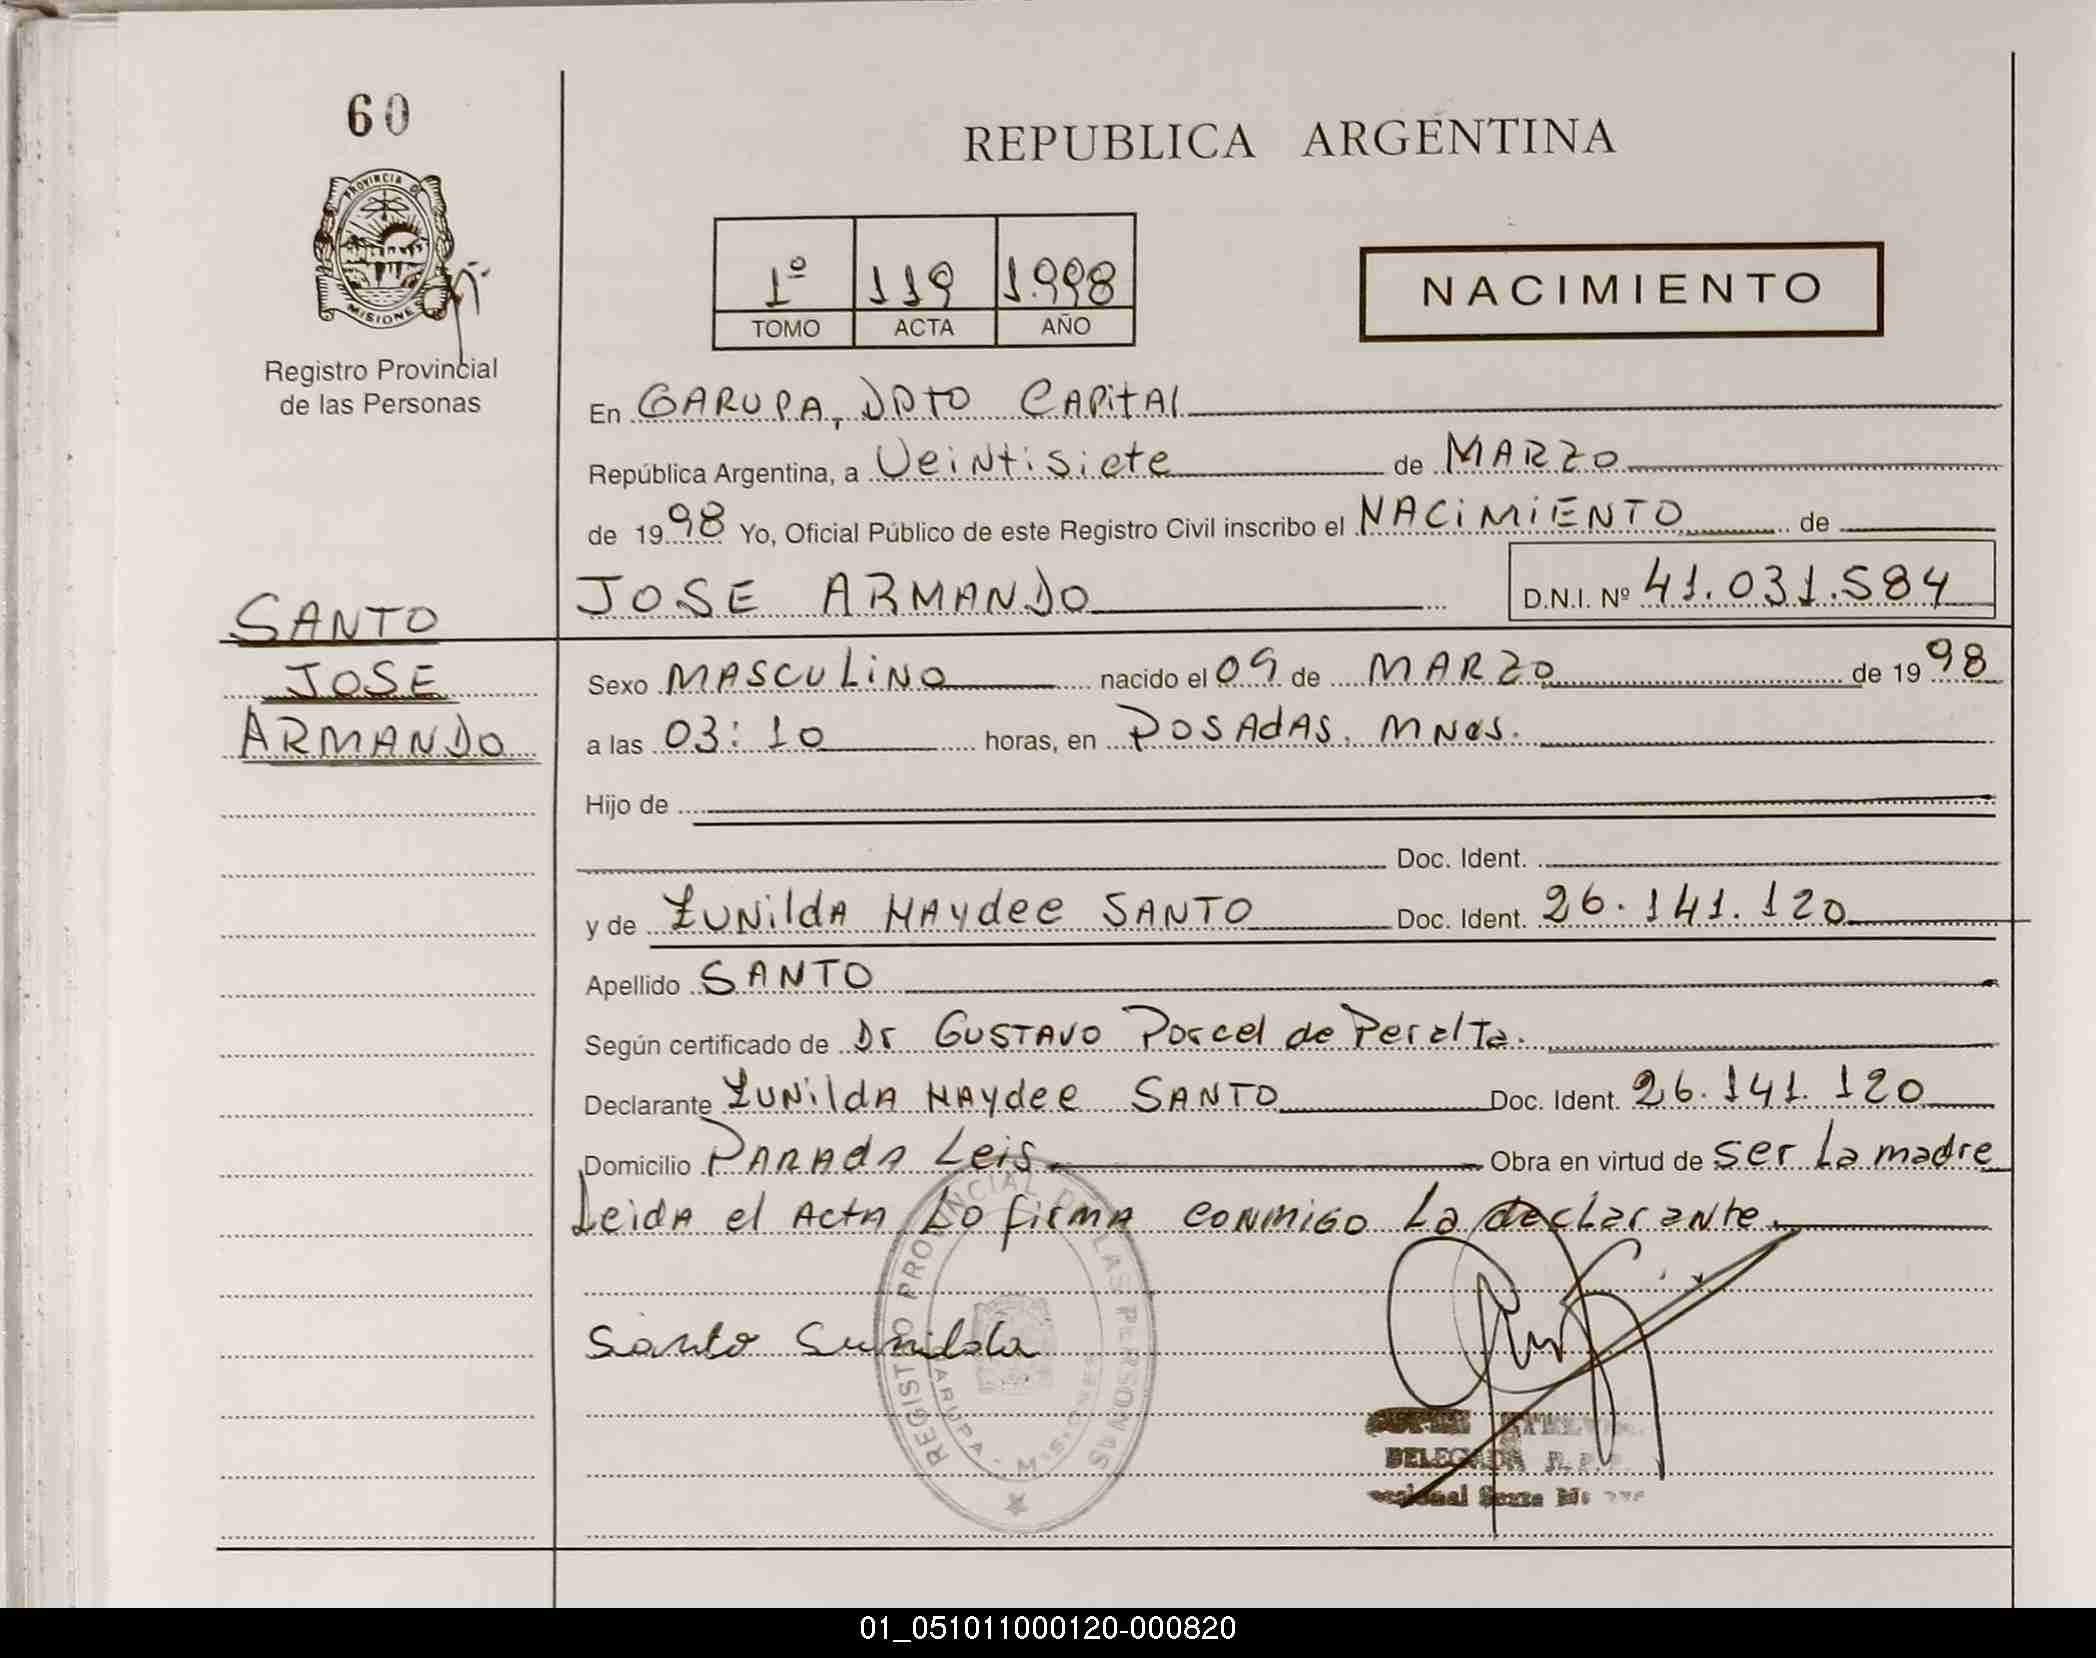 60
PROVINCIA DE
MISIONES
Registro Provincial
de las Personas
SANTO
JOSE
ARMANDO
REPUBLICA ARGENTINA
1º 119 1.998
TOMO ACTA AÑO
NACIMIENTO
En GARUPA, DPTO CAPitAl
República Argentina, a VeiNtisiete de MARZO
de 1998 Yo, Oficial Público de este Registro Civil inscribo el NACiMiENTO de
JOSE ARMANDO D.N.I. Nº 41.031.584
Sexo MASCULiNO nacido el 09 de MARZO de 1998
a las 03:10 horas, en POSAdAS. MNes.
Hijo de
Doc. Ident.
y de ZUNildA HAydee SANTO Doc. Ident. 26.141.120
Apellido SANTO
Según certificado de Dr GUSTAVO Porcel de Peralta.
Declarante ZUNildA HAydee SANTO Doc. Ident. 26.141.120
Domicilio PARAdA Leis Obra en virtud de ser La madre
LeidA el ActA Lo firMA coNMiGO La declarante.
Santo Sunilda
REGISTRO PROVINCIAL DE LAS PERSONAS
GARUPA - MISIONES
DELEGADA R.P.P.
01_051011000120-000820